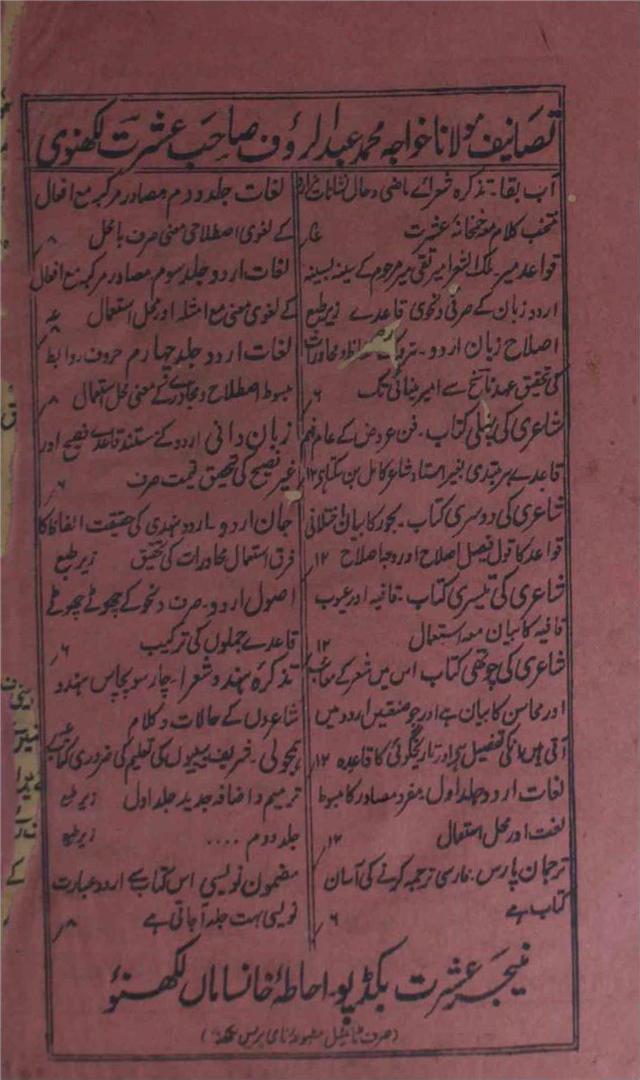 تصانیف مولانا خواجہ محمد عبدالرؤف صاحب عشرت لکھنوی
آب بقا۔ تذکرہ شعرائے ماضی و حال
منتخب کلام معہ خمخانۂ عشرت
قواعد میر۔ ملک الشعرا میر تقی میر مرحوم کے سینہ بسینہ
اردو زبان کے صرفی و نحوی قاعدے زیر طبع
اصلاح زبان اردو۔ الفاظ و محاورات
کی تحقیق عہد ناسخ سے امیر مینائی تک ۶؍
شاعری کی پہلی کتاب۔ فن عروض کے عام فہم
قاعدے ہر مبتدی بغیر استاد شاعر کامل بن سکتا ہے ۱۲؍
شاعری کی دوسری کتاب۔ بحور کا بیان اختلافی
قواعد کا قول فیصل اصلاح اور وجہ اصلاح ۱۲؍
شاعری کی تیسری کتاب۔ قافیہ اور عیوب
قافیہ کا بیان معہ استعمال ۱۲؍
شاعری کی چوتھی کتاب اس میں شعر کے معائب
اور محاسن کا بیان ہے اور جو صنعتیں اردو میں
آتی ہیں انکی تفصیل ہے اور تاریخگوئی کا قاعدہ ۱۲؍
لغات اردو جلد اول۔ مفرد مصادر کا مبسوط
لغت اور محل استعمال ۱۲؍
ترجمان پارس۔ فارسی ترجمہ کرنے کی آسان
کتاب ہے ۶؍
لغات جلد دوم مصادر مرکبہ مع افعال
کے لغوی اصطلاحی معنی صرف با محل ۸؍
لغات اردو جلد سوم مصادر مرکبہ مع افعال
کے لغوی معنی مع امثلہ اور محل استعمال
لغات اردو جلد چہارم حروف روابط
مبسوط اصطلاح و محاورے کے معنی محل استعمال ۸؍
زبان دانی اردو کے مستند قاعدے فصیح اور
غیر فصیح کی تحقیق قیمت صرف ۶؍
جان اردو۔ اردو ہندی کی حقیقت الفاظ کا
فرق استعمال محاورات کی تحقیق زیر طبع
اصول اردو۔ صرف و نحو کے چھوٹے چھوٹے
قاعدے جملوں کی ترکیب ۶؍
تذکرہ ہندو شعرا۔ چار سو پچاس ہندو
شاعروں کے حالات و کلام
ہمجولی۔ شریف بیٹیوں کی تعلیم کی ضروری کتاب
ترمیم و اضافہ جدید جلد اول زیر طبع
جلد دوم .... زیر طبع
مضمون نویسی اس کتاب سے اردو عبارت
نویسی بہت جلد آجاتی ہے ۸؍
منیجر عشرت بکڈپو۔ احاطۂ خانساماں لکھنؤ
(صرف ٹائٹیل مطبوعہ نامی پریس لکھنؤ)